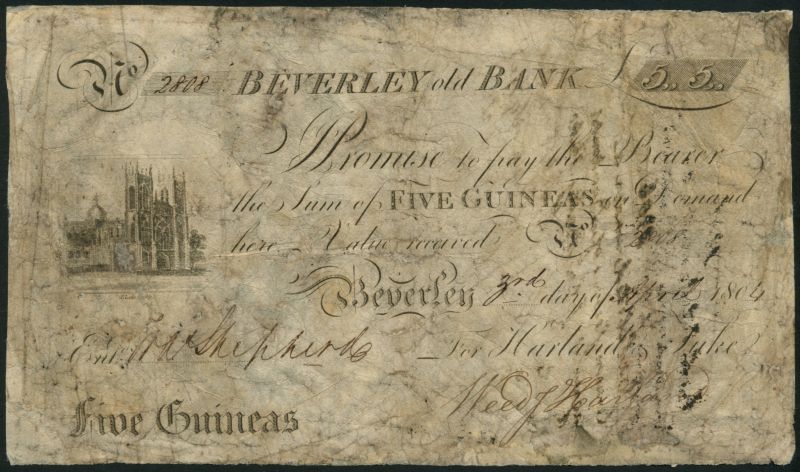 No 2808 BEVERLEY old BANK £ 5,, 5,,
Promise to pay the Bearer
the Sum of FIVE GUINEAS on Demand
here Value received No 2808
Beverley 3rd day of April 1804
Entd Shepherd For Harland & Tuke
Five Guineas